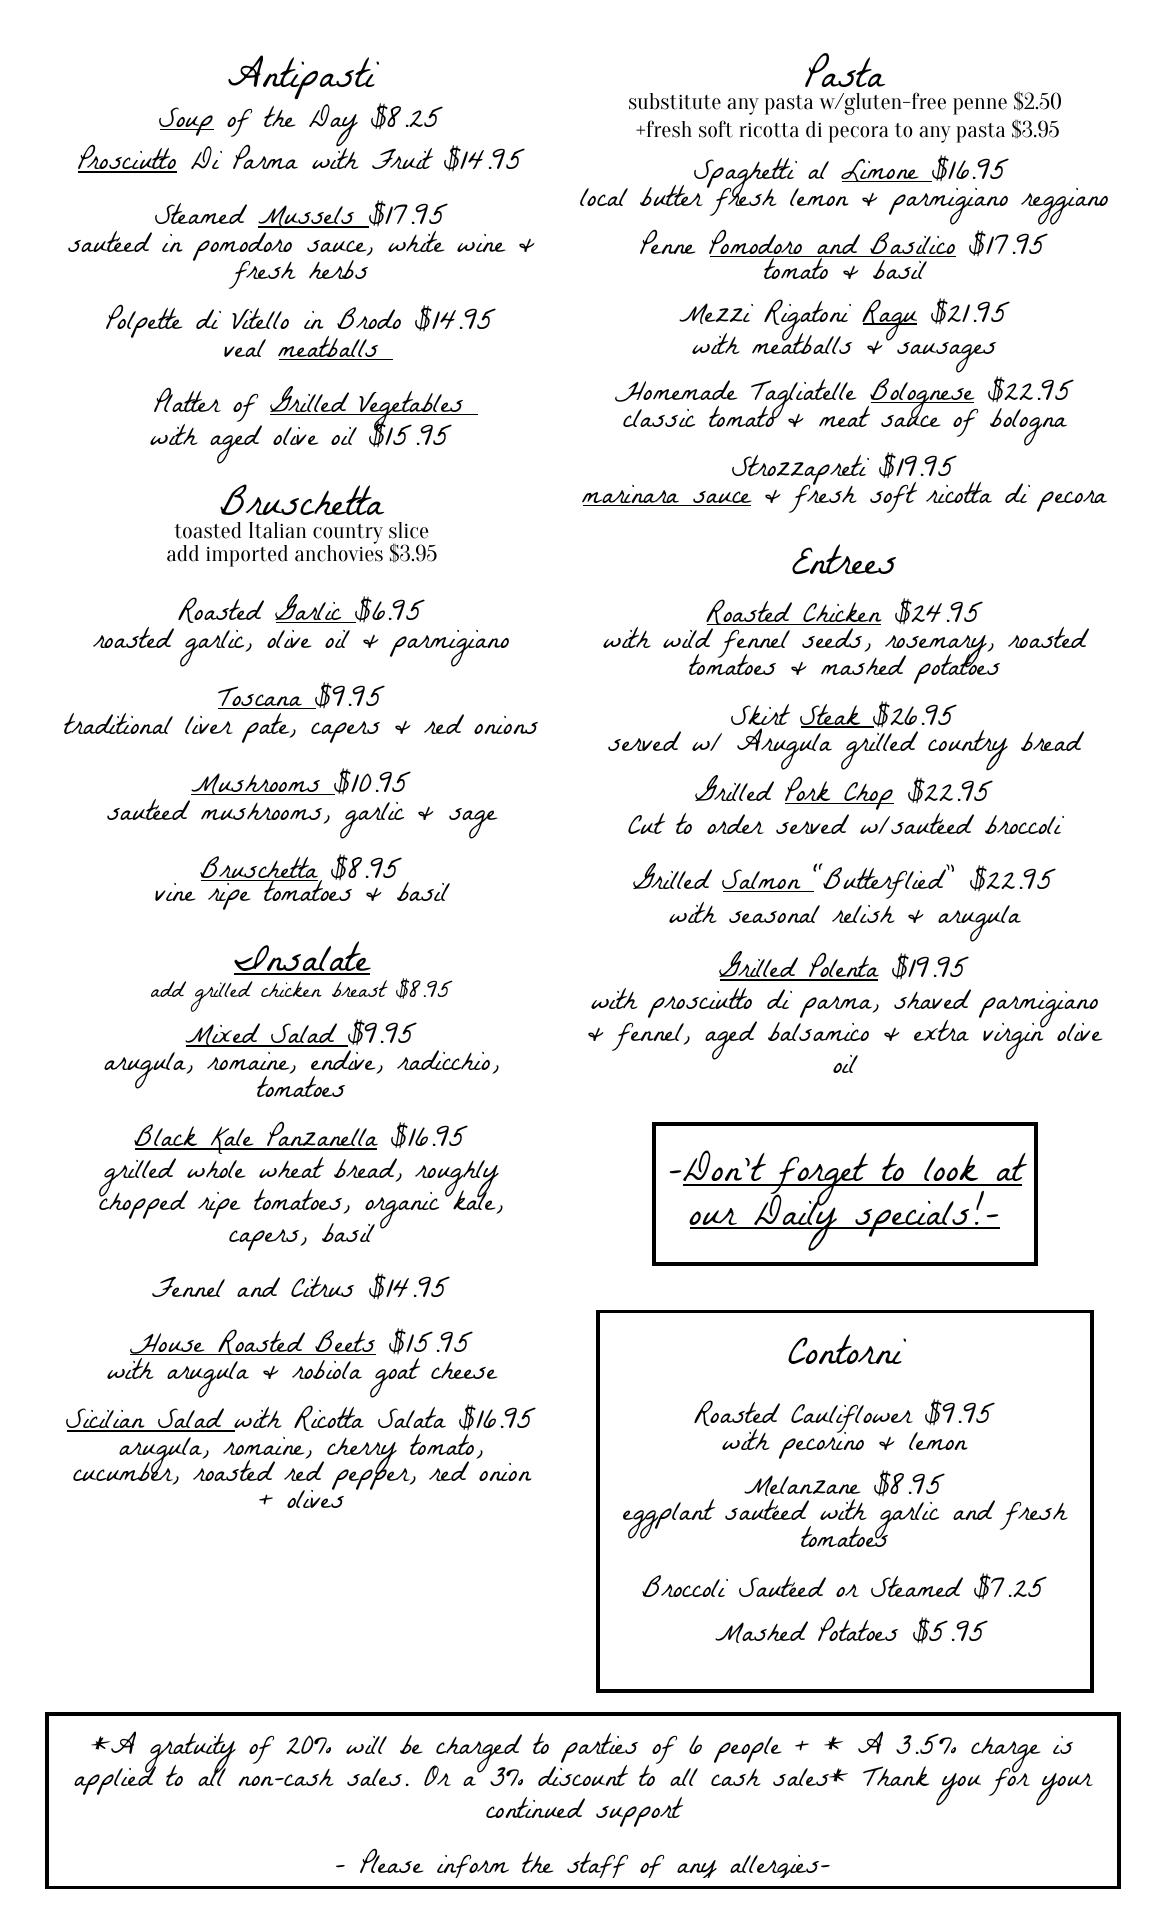 Antipasti
Soup of the Day $8.25
Prosciutto Di Parma with Fruit $14.95
Steamed Mussels $17.95
sautéed in pomodoro sauce, white wine &
fresh herbs
Polpette di Vitello in Brodo $14.95
veal meatballs
Platter of Grilled Vegetables
with aged olive oil $15.95
Bruschetta
toasted Italian country slice
add imported anchovies $3.95
Roasted Garlic $6.95
roasted garlic, olive oil & parmigiano
Toscana $9.95
traditional liver pate, capers & red onions
Mushrooms $10.95
sautéed mushrooms, garlic & sage
Bruschetta $8.95
vine ripe tomatoes & basil
Insalate
add grilled chicken breast $8.95
Mixed Salad $9.95
arugula, romaine, endive, radicchio,
tomatoes
Black Kale Panzanella $16.95
grilled whole wheat bread, roughly
chopped ripe tomatoes, organic kale,
capers, basil
Fennel and Citrus $14.95
House Roasted Beets $15.95
with arugula & robiola goat cheese
Sicilian Salad with Ricotta Salata $16.95
arugula, romaine, cherry tomato,
cucumber, roasted red pepper, red onion
+ olives
Pasta
substitute any pasta w/gluten-free penne $2.50
+fresh soft ricotta di pecora to any pasta $3.95
Spaghetti al Limone $16.95
local butter fresh lemon & parmigiano reggiano
Penne Pomodoro and Basilico $17.95
tomato & basil
Mezzi Rigatoni Ragu $21.95
with meatballs & sausages
Homemade Tagliatelle Bolognese $22.95
classic tomato & meat sauce of bologna
Strozzapreti $19.95
marinara sauce & fresh soft ricotta di pecora
Entrees
Roasted Chicken $24.95
with wild fennel seeds, rosemary, roasted
tomatoes & mashed potatoes
Skirt Steak $26.95
served w/ Arugula grilled country bread
Grilled Pork Chop $22.95
Cut to order served w/sautéed broccoli
Grilled Salmon “Butterflied” $22.95
with seasonal relish & arugula
Grilled Polenta $19.95
with prosciutto di parma, shaved parmigiano
& fennel, aged balsamico & extra virgin olive
oil
-Don't forget to look at
our Daily specials!-
Contorni
Roasted Cauliflower $9.95
with pecorino & lemon
Melanzane $8.95
eggplant sautéed with garlic and fresh
tomatoes
Broccoli Sautéed or Steamed $7.25
Mashed Potatoes $5.95
*A gratuity of 20% will be charged to parties of 6 people + * A 3.5% charge is
applied to all non-cash sales. Or a 3% discount to all cash sales* Thank you for your
continued support
- Please inform the staff of any allergies-